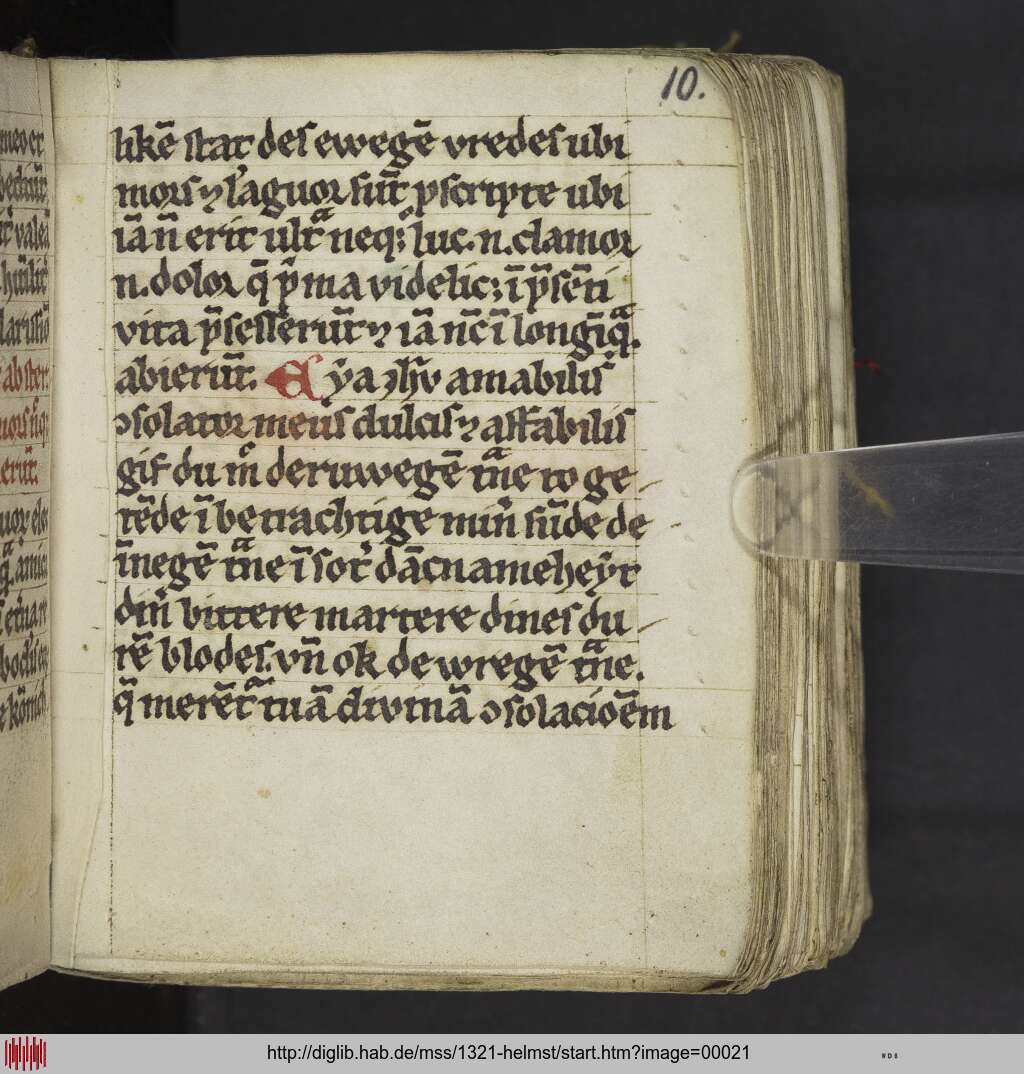 10.
likē stat des ewegē vredes ubi
mors ⁊ lāguor sūt pscripte ubi
iā n̄ erit ultͣ neq; luc. n. clamor
n. dolor q̄ p̄ma videlic; ī p̄sēti
vita p̄sesserūt ⁊ iā nc̄ ī longīqͣ.
abierūt. Eya ihū amabilis
ꝯsolator meus dulcis ⁊ affabilis
gif du mͦ der uwegē trͣne to ge
rēde ī betrachtige minͬ sūde de
īnegē trͣne ī sotͬ dācnameheyt
dinͬ bittere martere dines du
rē blodes. vn̄ ok de wregē trͣne.
q̄ merētͣ tuā divinā ꝯsolacioēm
http://diglib.hab.de/mss/1321-helmst/start.htm?image=00021